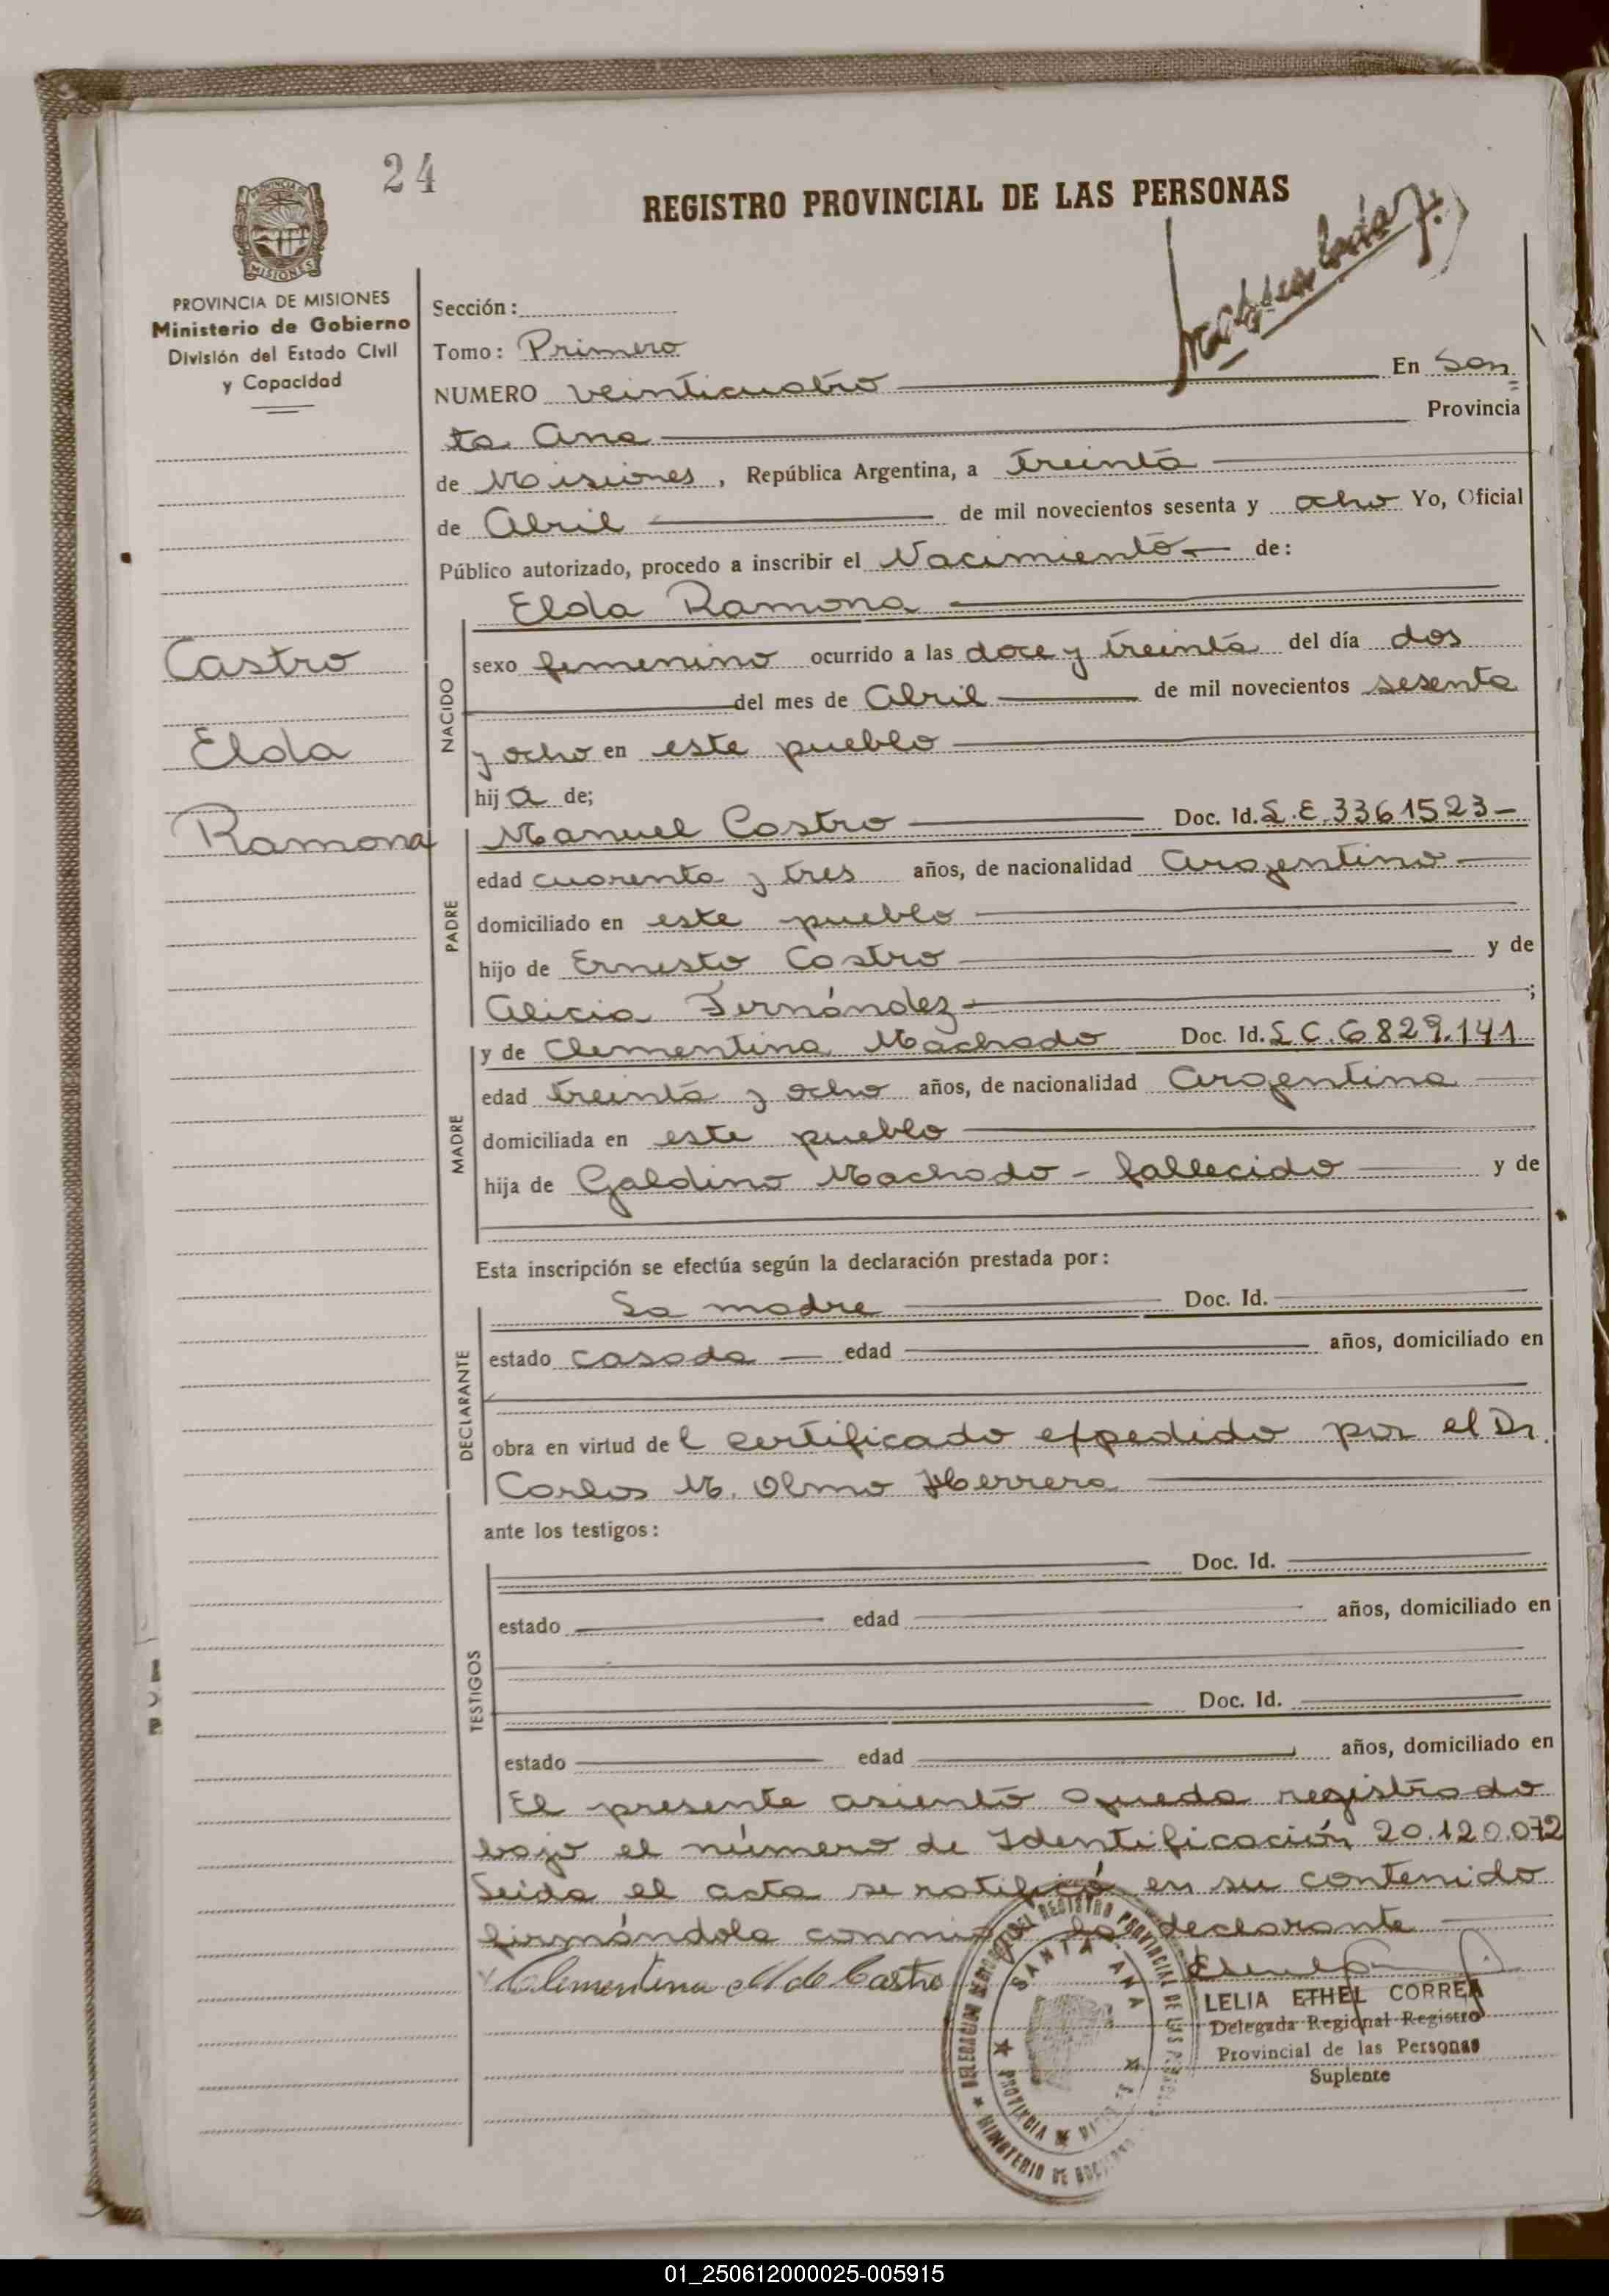 24
REGISTRO PROVINCIAL DE LAS PERSONAS
PROVINCIA DE
MISIONES
PROVINCIA DE MISIONES
Ministerio de Gobierno
División del Estado Civil
y Capacidad
Castro
Elda
Ramona
Sección:
Tomo: Primero
NUMERO veinticuatro En San
ta Ana Provincia
de Misiones, República Argentina, a treinta
de Abril de mil novecientos sesenta y ocho Yo, Oficial
Público autorizado, procedo a inscribir el Nacimiento de:
Elda Ramona
NACIDO
sexo femenino ocurrido a las doce y treinta del día dos
del mes de Abril de mil novecientos sesenta
y ocho en este pueblo
hij a de;
PADRE
Manuel Castro Doc. Id. L.E. 3361523
edad cuarenta y tres años, de nacionalidad Argentino
domiciliado en este pueblo
hijo de Ernesto Castro y de
Alicia Fernández ;
MADRE
y de Clementina Machado Doc. Id. L C. 6829.141
edad treinta y ocho años, de nacionalidad Argentina
domiciliada en este pueblo
hija de Galdino Machado - fallecido y de
Esta inscripción se efectúa según la declaración prestada por:
DECLARANTE
La madre Doc. Id.
estado casada edad años, domiciliado en
obra en virtud de l certificado expedido por el Dr.
Carlos M. Olmo Herrera
ante los testigos:
TESTIGOS
Doc. Id.
estado edad años, domiciliado en
Doc. Id.
estado edad años, domiciliado en
El presente asiento queda registrado
bajo el número de Identificación 20.120.072
Leida el acta se ratificó en su contenido
firmándola conmigo la declarante
Clementina M de Castro
LELIA ETHEL CORREA
Delegada Regional Registro
Provincial de las Personas
Suplente
REGISTRO PROVINCIAL DE LAS
SANTA ANA
PROVINCIA
MINISTERIO DE
01_250612000025-005915